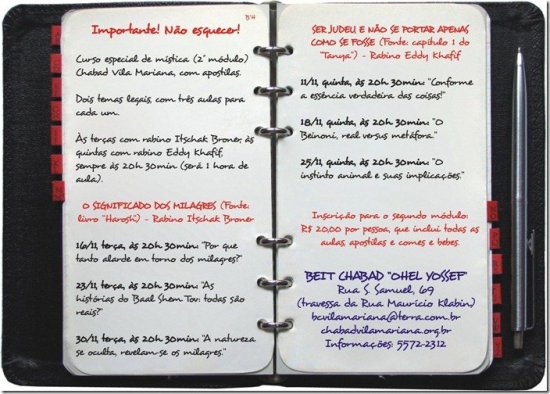 B"H
Importante! Não esquecer!
Curso especial de mística (2º módulo)
Chabad Vila Mariana, com apostilas.
Dois temas legais, com três aulas para
cada um.
Às terças com rabino Itschak Broner, às
quintas com rabino Eddy Khafif,
sempre às 20h 30min (será 1 hora de
aula).
O SIGNIFICADO DOS MILAGRES (Fonte:
livro "Harosh) - Rabino Itschak Broner
16/11, terça, às 20h 30min: "Por que
tanto alarde em torno dos milagres?"
23/11, terça, às 20h 30min: "As
histórias do Baal Shem Tov: todas são
reais?"
30/11, terça, às 20h 30min: "A natureza
se oculta, revelam-se os milagres."
SER JUDEU E NÃO SE PORTAR APENAS
COMO SE FOSSE (Fonte: capítulo 1 do
"Tanya") - Rabino Eddy Khafif
11/11, quinta, às 20h 30min: "Conforme
a essência verdadeira das coisas!"
18/11, quinta, às 20h 30min: "O
Beinoni, real versus metáfora."
25/11, quinta, às 20h 30min: "O
instinto animal e suas implicações."
Inscrição para o segundo módulo:
R$ 20,00 por pessoa, que inclui todas as
aulas, apostilas e comes e bebes.
BEIT CHABAD "OHEL YOSSEF"
Rua S. Samuel, 69
(travessa da Rua Maurício Klabin)
bcvilamariana@terra.com.br
chabadvilamariana.org.br
Informações: 5572-2312